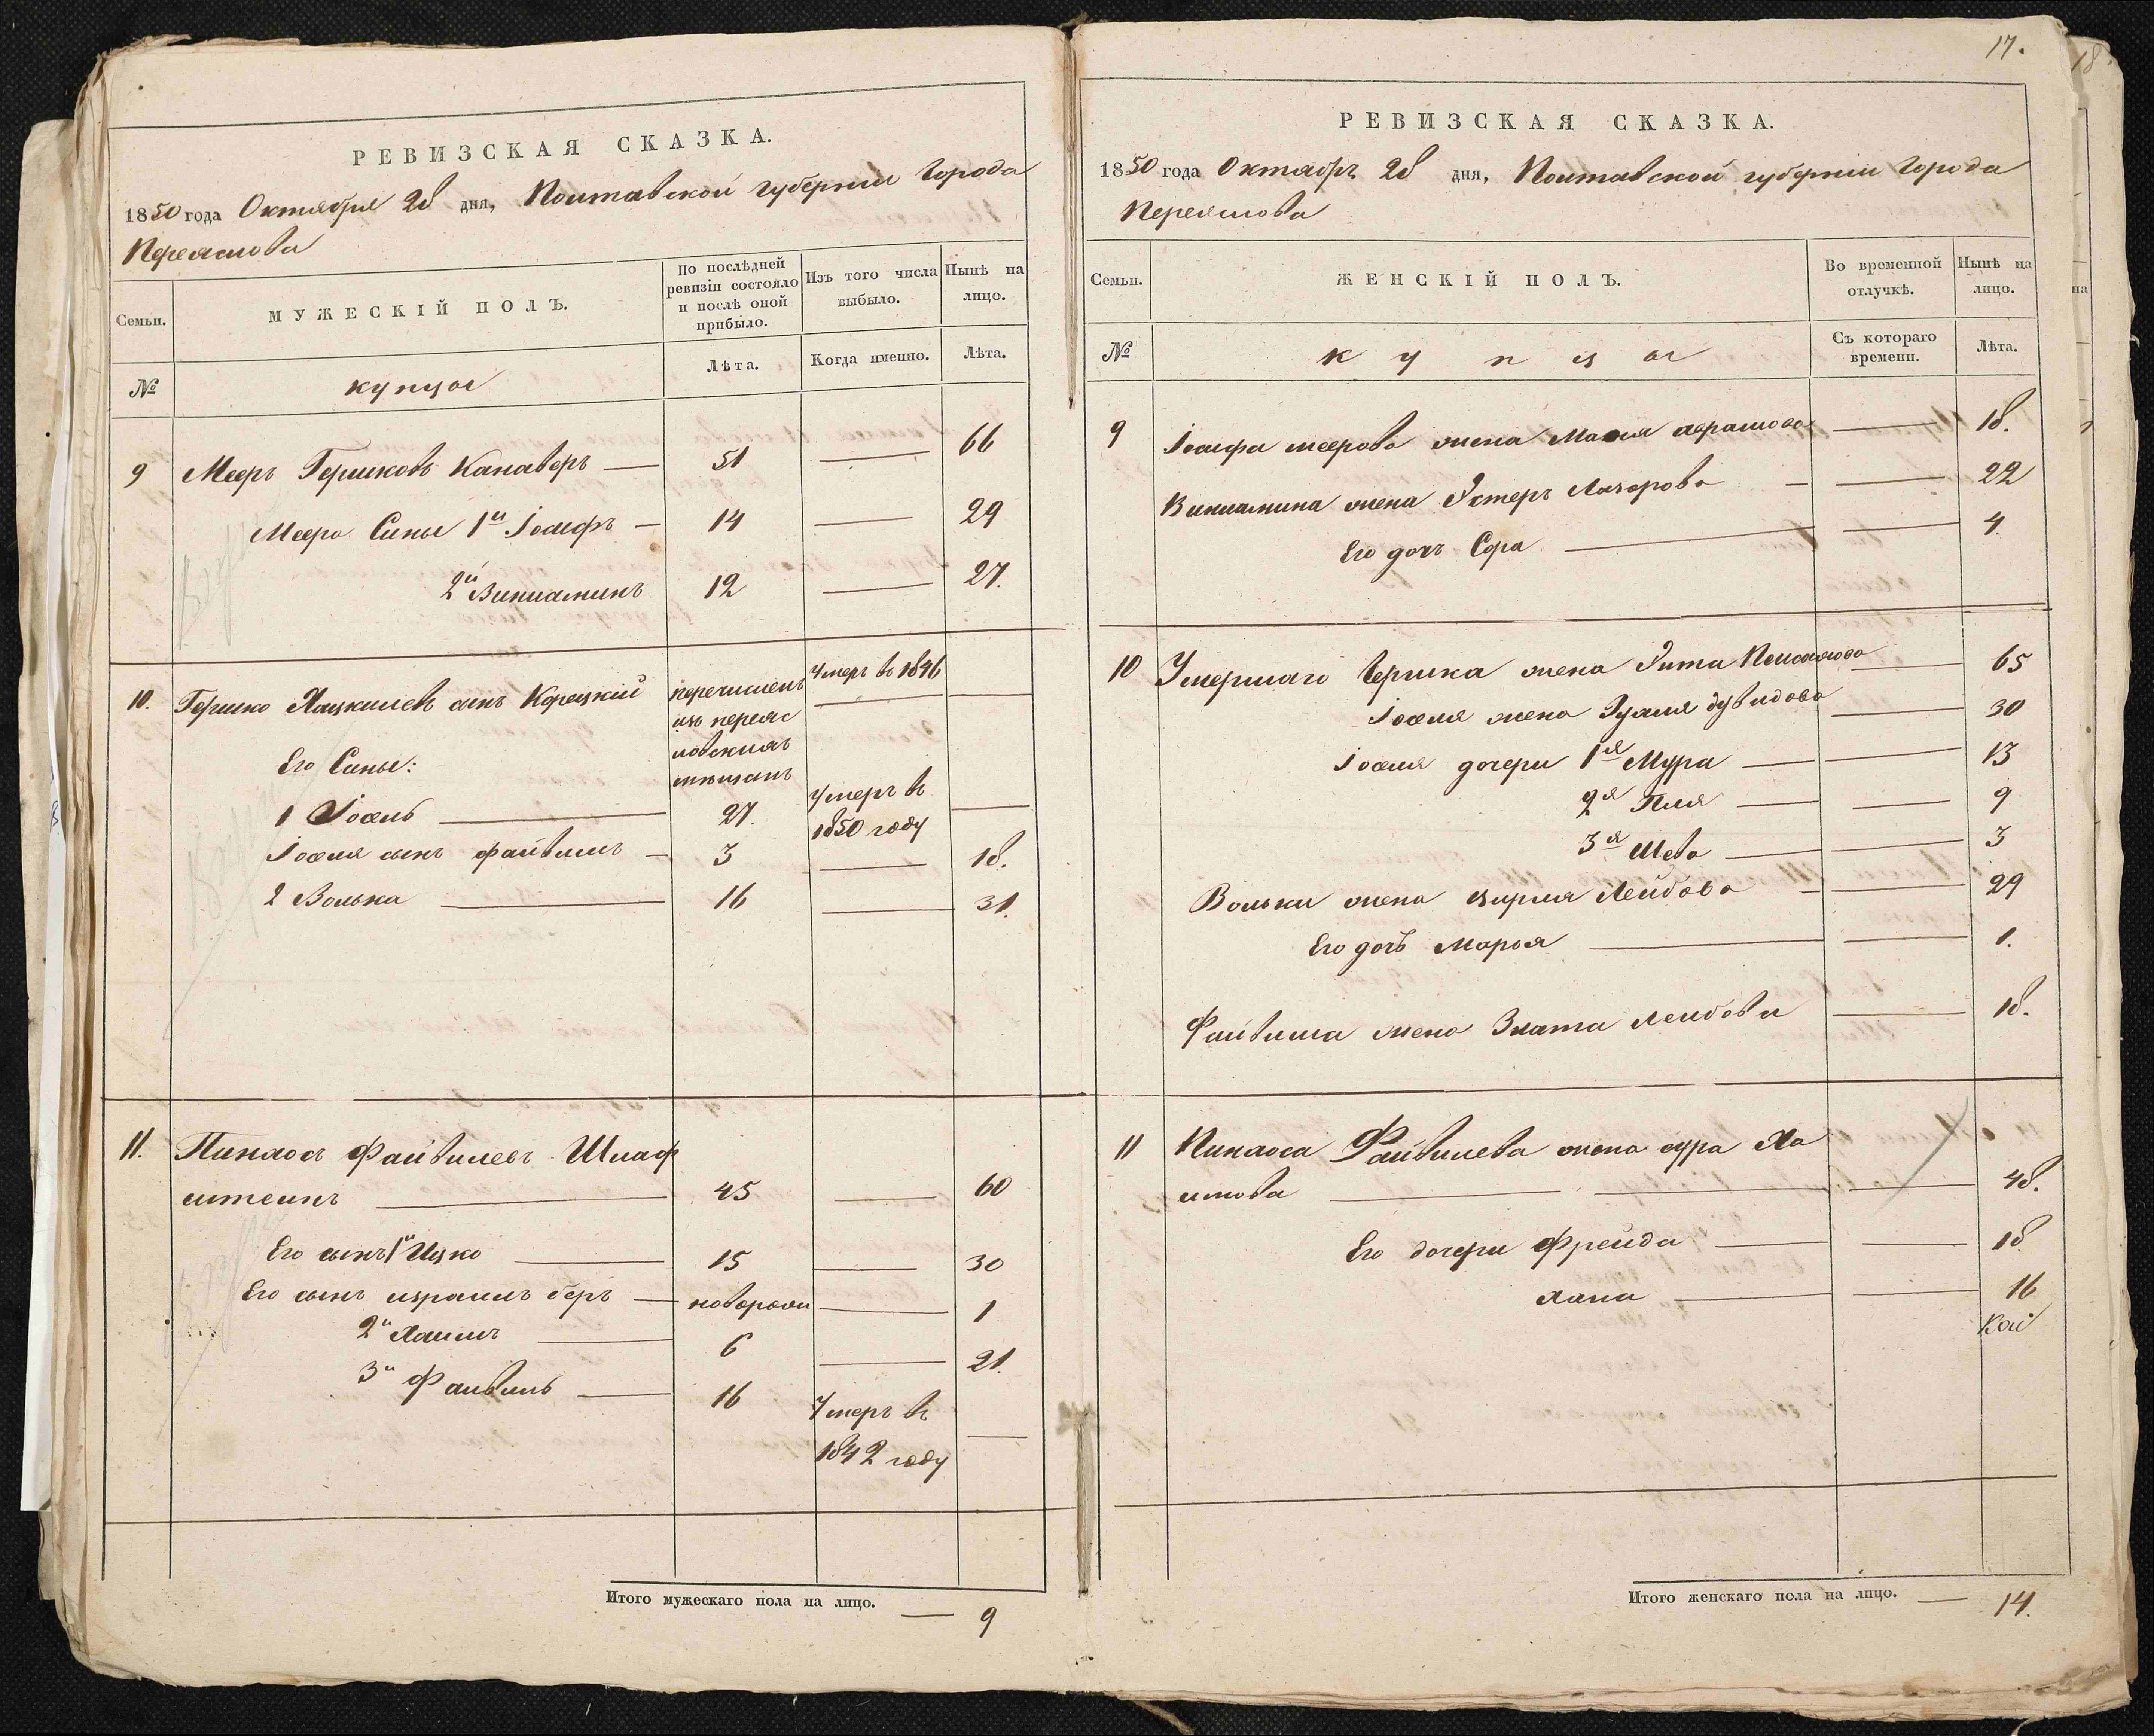 РЕВИЗСКАЯ СКАЗКА.
1850 года Октября 28 дня, Полтавской губернии города
Переяслова
Семьи. МУЖЕСКІЙ ПОЛЪ. По послѣдней ревизіи состояло и послѣ оной прибыло. Изъ того числа выбыло. Нынѣ на лицо.
№ купцы Лѣта. Когда именно. Лѣта.
9 Мееръ Гершковъ Канаверъ — 51 — 66
Меера Сины 1й Іосифъ — 14 — 29
2й Виниаминъ 12 — 27.
10. Гершко Хацкилевъ сынъ Корецкій перечисленъ изъ переяс ловскихъ мѣщанъ Умеръ въ 1846 —
Его Сины:
1 Іосель — 27. Умеръ въ 1850 году —
Іоселя сынъ файвишъ — 3 — 18.
2 Волька — 16 — 31.
11. Пинхосъ Файвишевъ Шлаф
штеинъ — 45 — 60
Его сынъ 1й Ицко — 15 — 30
Его сынъ израиль беръ — новорожд — 1
2й Хаимъ — 6 — 21.
3й Файвишъ — 16 Умеръ въ 1842 году —
Итого мужескаго пола на лицо. — 9
17.
РЕВИЗСКАЯ СКАЗКА.
1850 года Октябръ 28 дня, Полтавской губерніи города
Переяслова
Семьи. ЖЕНСКІЙ ПОЛЪ. Во временной отлучкѣ. Нынѣ на лицо.
№ купцы Съ котораго времени. Лѣта.
9 Іосифа меерова жена Маля абрамова — 18.
Виниамина жена Эстеръ Лазарова — 22
Его дочъ Сора — 4.
10 Умершаго Гершка жена Эита — 65
Іоселя жена Дувидова — 30
Іоселя дочери 1я Мура — 13
2я — 9
3я Шева — 3
Вольки жена цирля Лейбова — 29
Его дочъ Марья — 1.
Файвиша жена Злата Лейбова — 18.
11 Пинхоса Файвишева жена сура Ха
имова — 48.
Его дочери Фрейда — 18
хана — 16
Итого женскаго пола на лицо. — 14.
18.
на